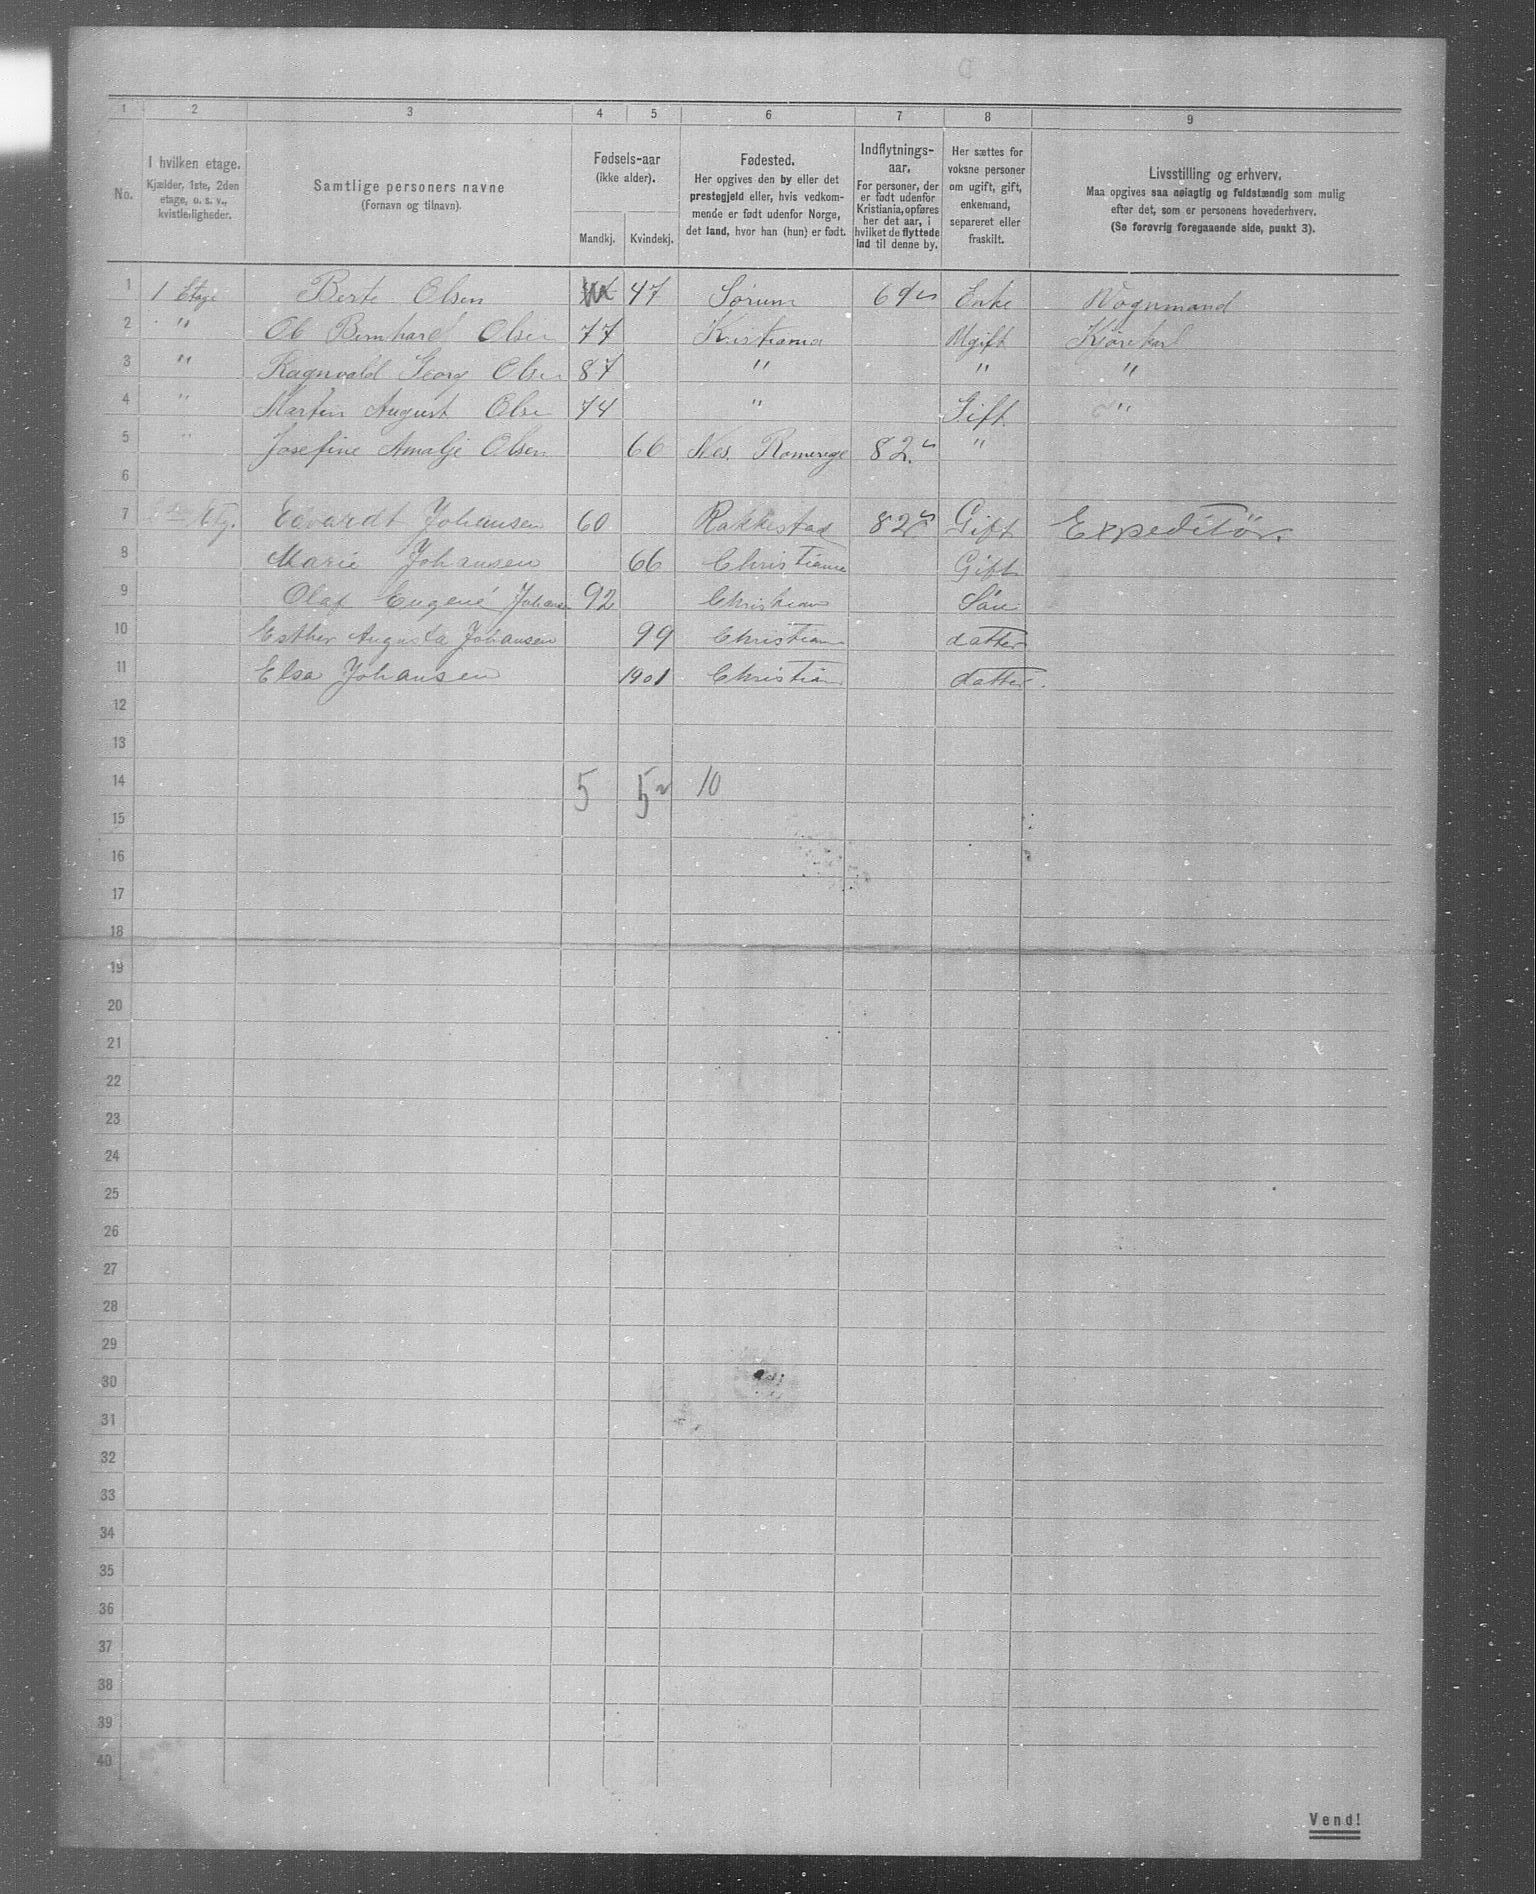 1 2 3 4 5 6 7 8 9
No.
I hvilken etage.
Kjælder, 1ste, 2den
etage, o. s. v.,
kvistleiligheder.
Samtlige personers navne
(Fornavn og tilnavn).
Fødsels-aar
(ikke alder).
Mandkj. Kvindekj.
Fødested.
Her opgives den by eller det
prestegjeld eller, hvis vedkom-
mende er født udenfor Norge,
det land, hvor han (hun) er født.
Indflytnings-
aar.
For personer, der
er født udenfor
Kristiania, opføres
her det aar, i
hvilket de flyttede
ind til denne by.
Her sættes for
voksne personer
om ugift, gift,
enkemand,
separeret eller
fraskilt.
Livsstilling og erhverv.
Maa opgives saa nøiagtig og fuldstændig som mulig
efter det, som er personens hovederhverv.
(Se forøvrig foregaaende side, punkt 3).
1 1 Etage Berte Olsen 47 Sørum 69 Enke Vognmand
2 " Ol Bernhard Olsen 77 Kristiania Ugift Kjørekarl
3 " Ragnvald Georg Olsen 87 " " "
4 " Martin August Olse 74 " Gift "
5 " Josefine Amalje Olsen 66 Nes. Romerige 82. "
6
7 Etg. Edvardt Johansen 60 Rakkestad 82 Gift Expeditör.
8 Marie Johansen 66 Christiania Gift
9 Olaf Eugene Johansen 92 Christian Sön
10 Esther Augusta Johansen 99 Christian datter
11 Elsa Johansen 1901 Christian datter.
12
13
14 5 5 10
15
16
17
18
19
20
21
22
23
24
25
26
27
28
29
30
31
32
33
34
35
36
37
38
39
40
Vend!